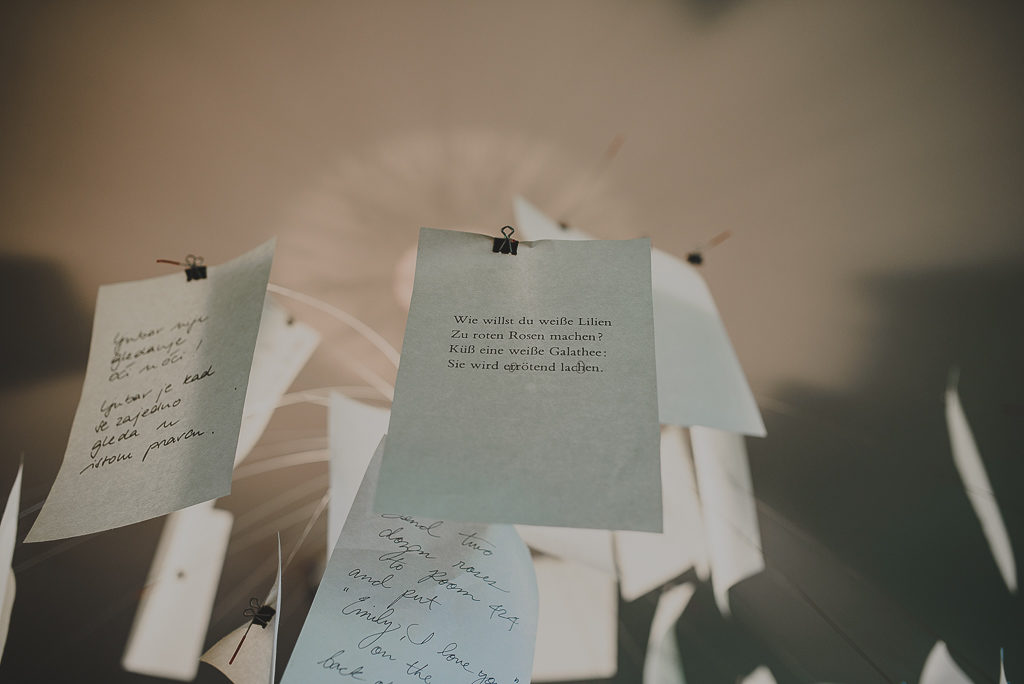 Ljubav nije
gledanje
oči u oči!
Ljubav je kad
se zajedno
gleda u
istom pravcu.
Wie willst du weiße Lilien
Zu roten Rosen machen?
Küß eine weiße Galathee:
Sie wird errötend lachen.
Send two
dozen roses
to Room 424
and put
"Emily, I love you"
on the
back